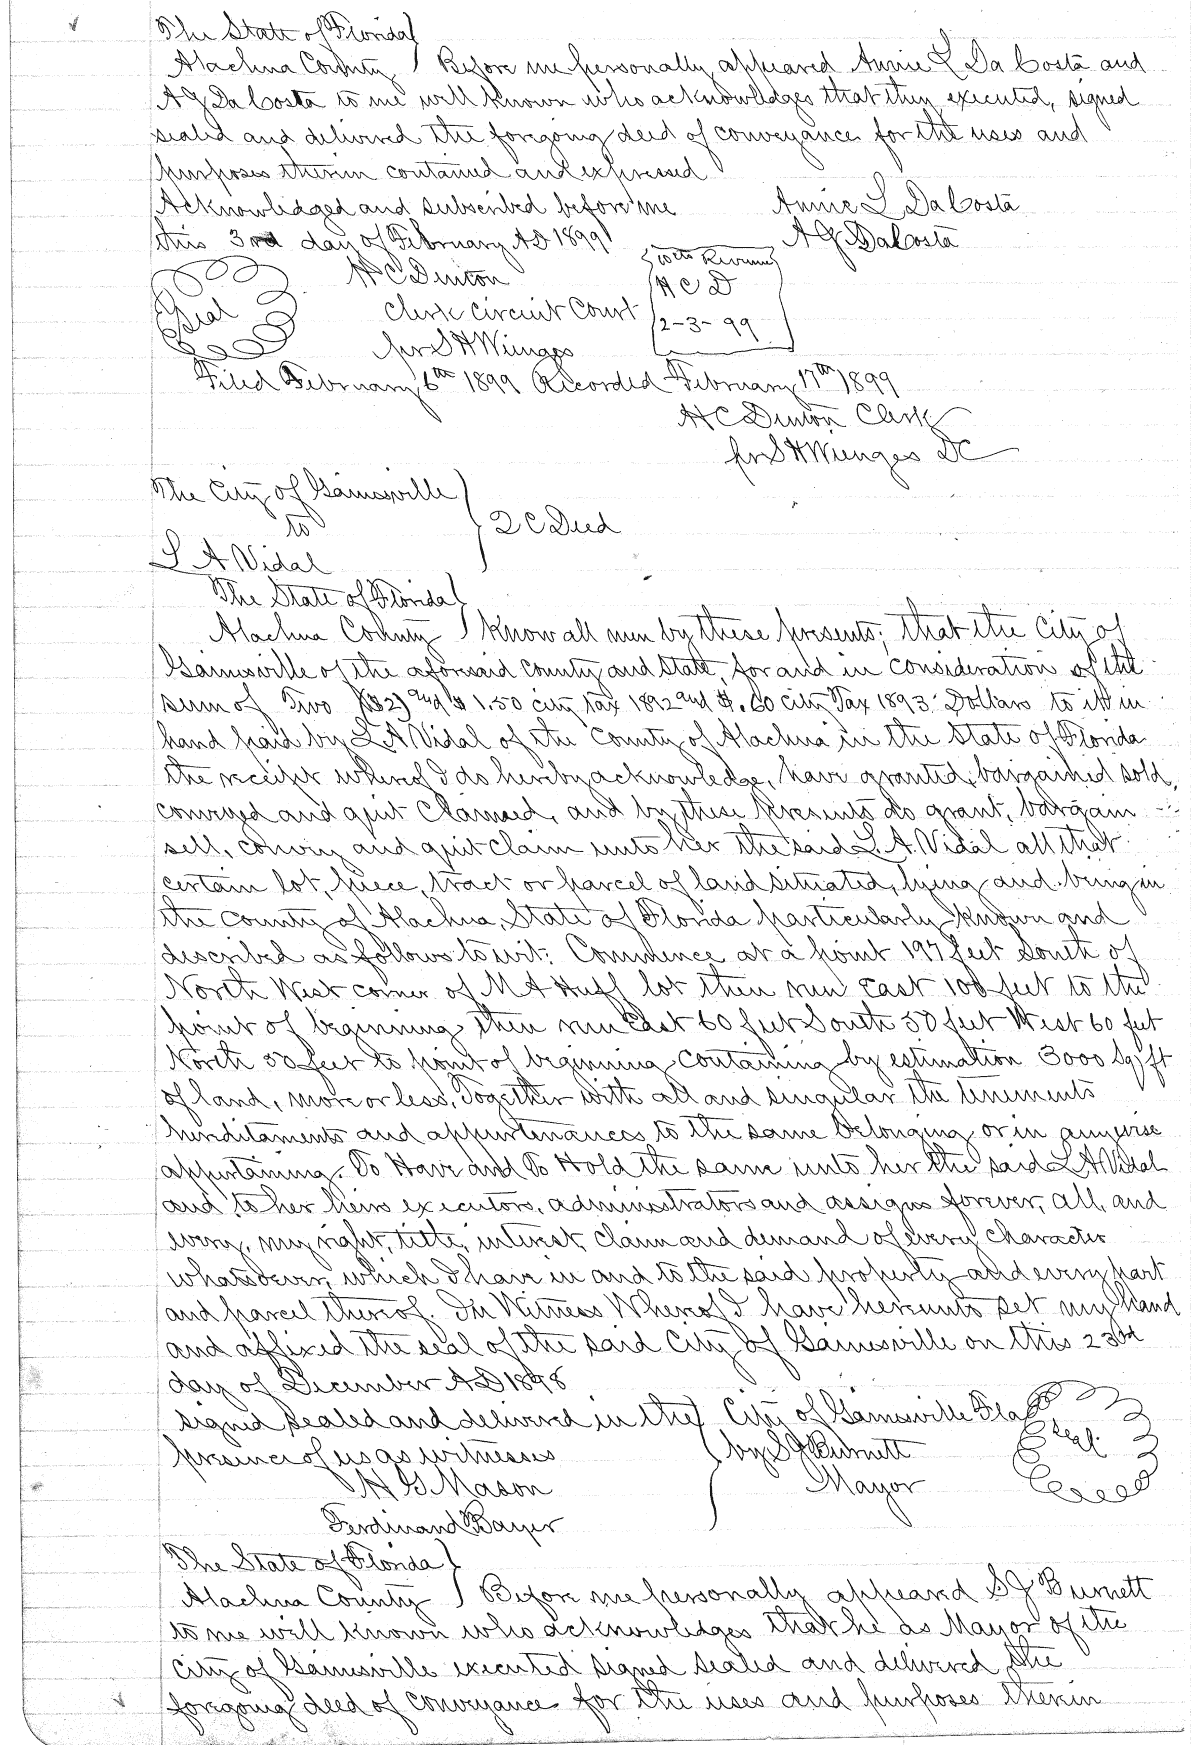 The State of Florida
Alachua County Before me personally appeared Annie L DaCosta and
A J DaCosta to me well known who acknowledges that they executed, signed
sealed and delivered the foregoing deed of conveyance for the uses and
purposes therein contained and expressed
Acknowledged and subscribed before me Annie L DaCosta
this 3rd day of February AD 1899 A J DaCosta
H C Denton 10 cts Revenue
Seal Clerk Circuit Court H C D
per S H Wienges 2-3-99
Filed February 6th 1899 Recorded February 17th 1899
H C Denton Clerk
per S H Wienges DC
The City of Gainesville
to 2 C Deed
L A Vidal
The State of Florida
Alachua County Know all men by these presents; that the City of
Gainesville of the aforesaid County and State, for and in consideration of the
sum of Two ($2) and $1.50 city tax 1892 and $.60 city Tax 1893 Dollars to it in
hand paid by L A Vidal of the County of Alachua in the State of Florida
the receipt whereof I do hereby acknowledge, have granted, bargained sold,
conveyed and quit claimed, and by these presents do grant, bargain
sell, convey and quit claim unto her the said L. A. Vidal all that
certain lot, piece, tract or parcel of land situated, lying and being in
the County of Alachua, State of Florida particularly known and
described as follows to wit: Commence at a point 197 feet South of
North West corner of M A Huff lot then run East 100 feet to the
point of beginning then run East 60 feet South 50 feet West 60 feet
North 50 feet to point of beginning containing by estimation 3000 Sq ft
of land, more or less, Together with all and singular the tenements
hereditaments and appurtenances to the same belonging or in anywise
appertaining. To Have and To Hold the same unto her the said L A Vidal
and to her heirs executors, administrators and assigns forever, all, and
every, my right, title, interest, claim and demand of every character
whatsoever, which I have in and to the said property and every part
and parcel thereof. In Witness Whereof I have hereunto set my hand
and affixed the seal of the said City of Gainesville on this 23rd
day of December AD 1898
signed sealed and delivered in the City of Gainesville Fla
presence of us as witnesses by S J Burnett Seal
H G Mason Mayor
Ferdinand Bayer
The State of Florida
Alachua County Before me personally appeared S J Burnett
to me well known who acknowledges that he as Mayor of the
City of Gainesville executed signed sealed and delivered the
foregoing deed of conveyance for the uses and purposes therein